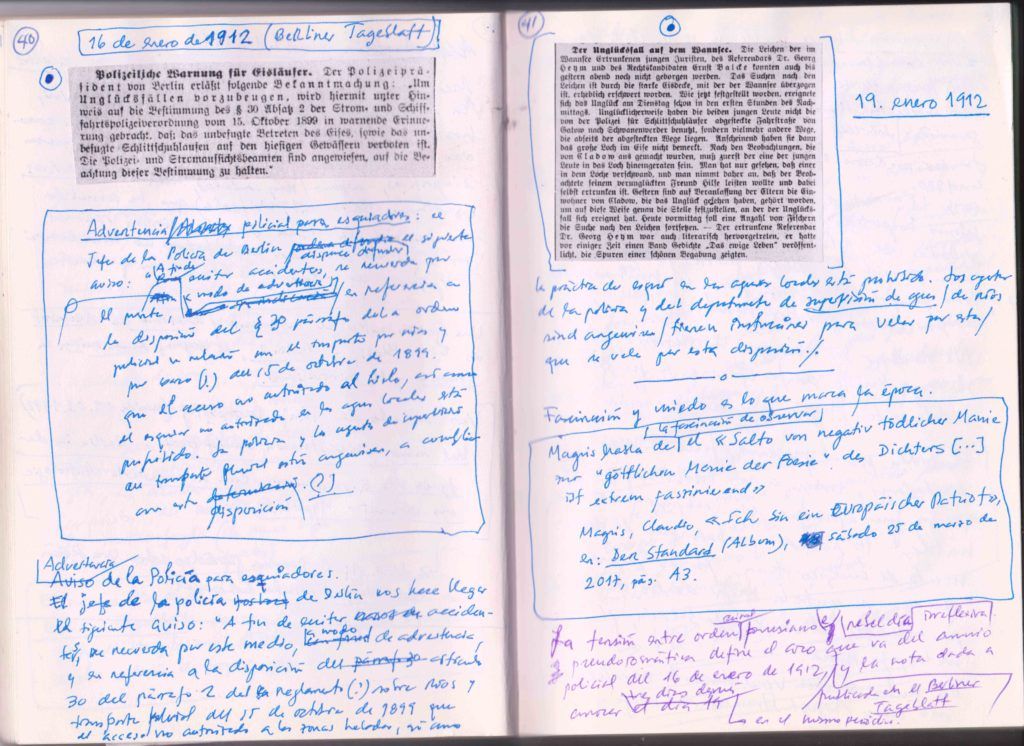 40
16 de enero de 1912 (Berliner Tageblatt)
Polizeiliche Warnung für Eisläufer. Der Polizeiprä-
sident von Berlin erläßt folgende Bekanntmachung: „Um
Unglücksfällen vorzubeugen, wird hiermit unter Hin-
weis auf die Bestimmung des § 30 Absatz 2 der Strom- und Schiff-
fahrtspolizeiverordnung vom 15. Oktober 1899 in warnende Erinne-
rung gebracht, daß das unbefugte Betreten des Eises, sowie das un-
befugte Schlittschuhlaufen auf den hiesigen Gewässern verboten ist.
Die Polizei- und Stromaufsichtsbeamten sind angewiesen, auf die Be-
achtung dieser Bestimmung zu halten."
Advertencia policial para esquiadores: el
Jefe de la Policía de Berlín el siguiente
aviso: "A fin de evitar accidentes, se recuerda por
el punte, a modo de advertencia en referencia a
la disposición del § 30 párrafo de la orden
policial en relación con el transporte por ríos y
por barco (?) del 15 de octubre de 1899.
que el acceso no autorizado al hielo, así como
el esquiar no autorizado en las aguas locales está
prohibido. La policía y los agentes de supervisión
del transporte fluvial están angewiesen, a cumplir
con esta disposición. (?)
Advertencia
Aviso de la Policía para esquiadores.
El jefe de la policía de Berlín nos hace llegar
el siguiente aviso: "A fin de evitar acciden-
tes, se recuerda por este medio, a modo de advertencia,
y en referencia a la disposición del párrafo artículo
30 del párrafo 2 del reglamento (?) sobre ríos y
transporte fluvial del 15 de octubre de 1899 que
el acceso no autorizado a las zonas heladas, así como
41
Der Unglücksfall auf dem Wannsee. Die Leichen der im
Wannsee Ertrunkenen jungen Juristen, des Referendars Dr. Georg
Heym und des Rechtskandidaten Ernst Balcke konnten auch bis
gestern abend noch nicht geborgen werden. Das Suchen nach den
Leichen ist durch die starke Eisdecke, mit der der Wannsee überzogen
ist, erheblich erschwert worden. Wie jetzt festgestellt worden, ereignete
sich das Unglück am Dienstag schon in den ersten Stunden des Nach-
mittags. Unglücklicherweise haben die beiden jungen Leute nicht die
von der Polizei für Schlittschuhläufer abgesteckte Fahrstraße von
Gatow nach Schwanenwerder benutzt, sondern vielmehr andere Wege,
die abseits der abgesteckten Wege liegen. Anscheinend haben sie dann
das große Loch im Eise nicht bemerkt. Nach den Beobachtungen, die
von Cladow aus gemacht wurden, muß zuerst der eine der jungen
Leute in das Loch hineingeraten sein. Man hat nur gesehen, daß einer
in dem Loche verschwand, und man nimmt daher an, daß der Beob-
achtete seinem verunglückten Freund Hilfe leisten wollte und dabei
selbst ertrunken ist. Gestern sind auf Veranlassung der Eltern die Ein-
wohner von Cladow, die das Unglück gesehen haben, gehört worden,
um auf diese Weise genau die Stelle festzustellen, an der der Unglücks-
fall sich ereignet hat. Heute vormittag soll eine Anzahl von Fischern
die Suche nach den Leichen fortsetzen. — Der ertrunkene Referendar
Dr. Georg Heym war auch literarisch hervorgetreten, er hatte
vor einiger Zeit einen Band Gedichte „Das ewige Leben" veröffent-
licht, die Spuren einer schönen Begabung zeigten.
19. enero 1912
la práctica de esquí en las aguas locales está prohibido. Los agentes
de la policía y del departamento de supervisión de aguas / de ríos
sind angewiesen / tienen instrucciones para velar por esta /
que se vele por esta disposición./.
Fascinación y miedo es lo que marca la época.
la fascinación de observar
Magris habla de el «Salto von negativ tödlicher Manie
zur "göttlichen Manie der Poesie" des Dichters [...]
ist extrem faszinierend»
Magris, Claudio, «Ich bin ein Europäischer Patriot»,
en: Der Standard (Album), sábado 25 de marzo de
2017, pág. A3.
La tensión entre orden prusiano y rebeldía irreflexiva
y pseudorromántica define el arco que va del anuncio
policial del 16 de enero de 1912, y la nota dada a
conocer el día 19 tres días después
publicada en el Berliner
Tageblatt
en el mismo periódico.